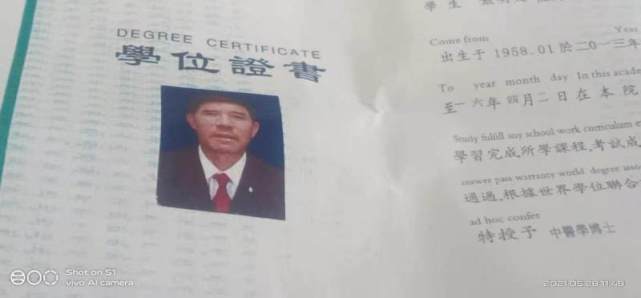 DEGREE CERTIFICATE
學位證書
學 生
Come from Year
出生于 1958.01 於二0一三年
To year month day In this acade
至一六年四月二日在本院
Study fulfill any school work curriculum e
學習完成所學課程,考試成
answer pass warranty world degree asso
通過,根據世界學位聯合
ad hoc confer
特授予 中醫學博士
Shot on S1
vivo AI camera
2021.05.28 11:48